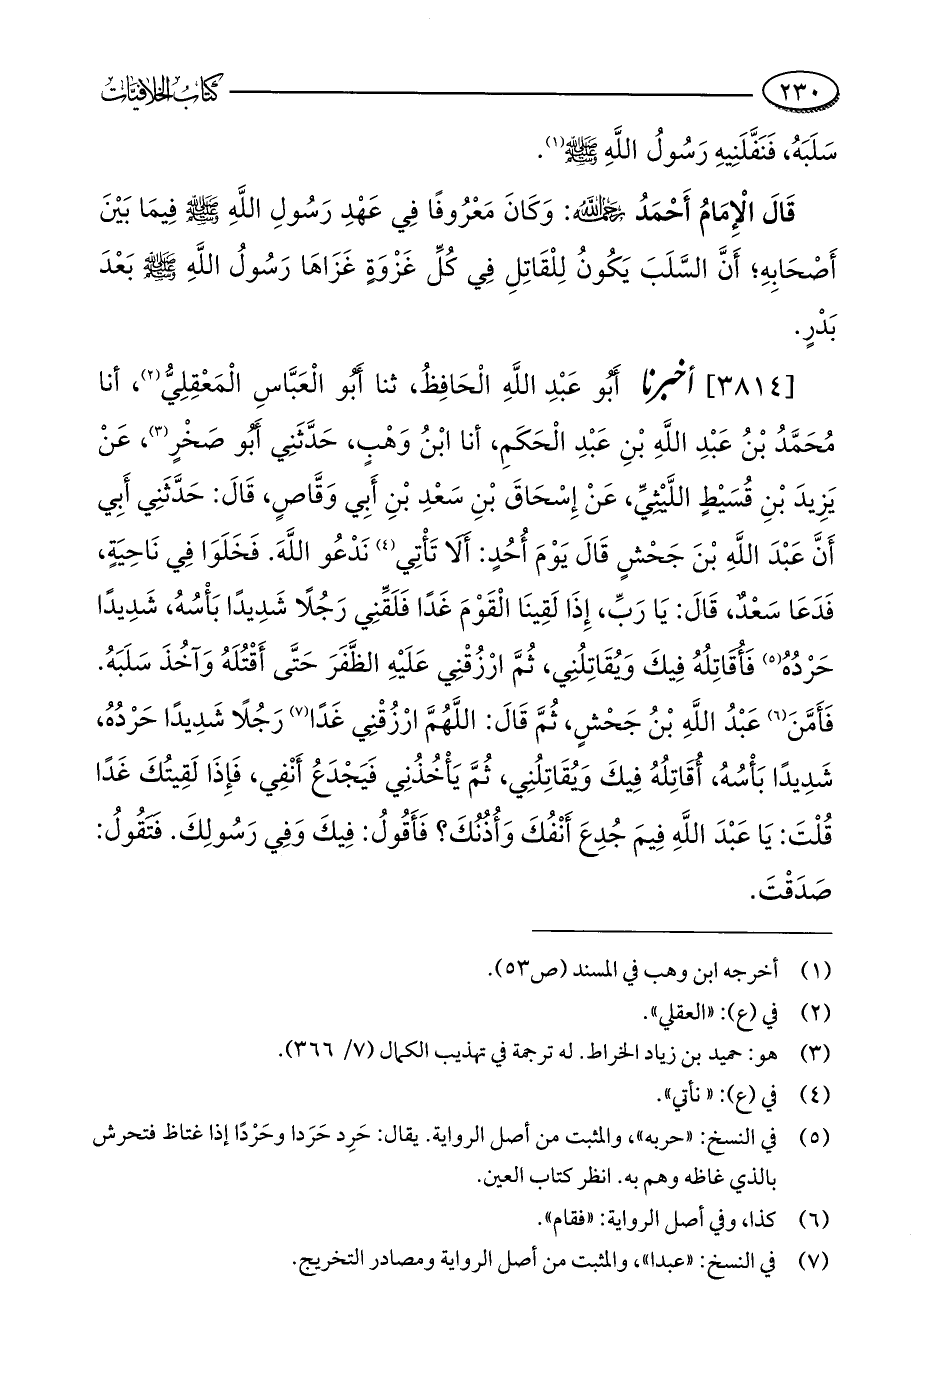 ٢٣٠ كتاب الخلافيات
سَلَبَهُ، فَنَفَّلَنِيهِ رَسُولُ اللَّهِ ﷺ(١).
قَالَ الْإِمَامُ أَحْمَدُ رَحِمَهُ اللَّهُ: وَكَانَ مَعْرُوفًا فِي عَهْدِ رَسُولِ اللَّهِ ﷺ فِيمَا بَيْنَ
أَصْحَابِهِ؛ أَنَّ السَّلَبَ يَكُونُ لِلْقَاتِلِ فِي كُلِّ غَزْوَةٍ غَزَاهَا رَسُولُ اللَّهِ ﷺ بَعْدَ
بَدْرٍ.
[٣٨١٤] أخبرنا أَبُو عَبْدِ اللَّهِ الْحَافِظُ، ثنا أَبُو الْعَبَّاسِ الْمَعْقِلِيُّ(٢)، أنا
مُحَمَّدُ بْنُ عَبْدِ اللَّهِ بْنِ عَبْدِ الْحَكَمِ، أنا ابْنُ وَهْبٍ، حَدَّثَنِي أَبُو صَخْرٍ(٣)، عَنْ
يَزِيدَ بْنِ قُسَيْطٍ اللَّيْثِيِّ، عَنْ إِسْحَاقَ بْنِ سَعْدِ بْنِ أَبِي وَقَّاصٍ، قَالَ: حَدَّثَنِي أَبِي
أَنَّ عَبْدَ اللَّهِ بْنَ جَحْشٍ قَالَ يَوْمَ أُحُدٍ: أَلَا تَأْتِي(٤) نَدْعُو اللَّهَ. فَخَلَوَا فِي نَاحِيَةٍ،
فَدَعَا سَعْدٌ، قَالَ: يَا رَبِّ، إِذَا لَقِينَا الْقَوْمَ غَدًا فَلَقِّنِي رَجُلًا شَدِيدًا بَأْسُهُ، شَدِيدًا
حَرْدُهُ(٥) فَأُقَاتِلُهُ فِيكَ وَيُقَاتِلُنِي، ثُمَّ ارْزُقْنِي عَلَيْهِ الظَّفَرَ حَتَّى أَقْتُلَهُ وَآخُذَ سَلَبَهُ.
فَأَمَّنَ(٦) عَبْدُ اللَّهِ بْنُ جَحْشٍ، ثُمَّ قَالَ: اللَّهُمَّ ارْزُقْنِي غَدًا(٧) رَجُلًا شَدِيدًا حَرْدُهُ،
شَدِيدًا بَأْسُهُ، أُقَاتِلُهُ فِيكَ وَيُقَاتِلُنِي، ثُمَّ يَأْخُذُنِي فَيَجْدَعُ أَنْفِي، فَإِذَا لَقِيتُكَ غَدًا
قُلْتَ: يَا عَبْدَ اللَّهِ فِيمَ جُدِعَ أَنْفُكَ وَأُذُنُكَ؟ فَأَقُولُ: فِيكَ وَفِي رَسُولِكَ. فَتَقُولُ:
صَدَقْتَ.
(١) أخرجه ابن وهب في المسند (ص٥٣).
(٢) في (ع): «العقلي».
(٣) هو: حميد بن زياد الخراط. له ترجمة في تهذيب الكمال (٧/ ٣٦٦).
(٤) في (ع): « نأتي».
(٥) في النسخ: «حربه»، والمثبت من أصل الرواية. يقال: حَرِد حَرَدا وحَرْدًا إذا غتاظ فتحرش
بالذي غاظه وهم به. انظر كتاب العين.
(٦) كذا، وفي أصل الرواية: «فقام».
(٧) في النسخ: «عبدا»، والمثبت من أصل الرواية ومصادر التخريج.